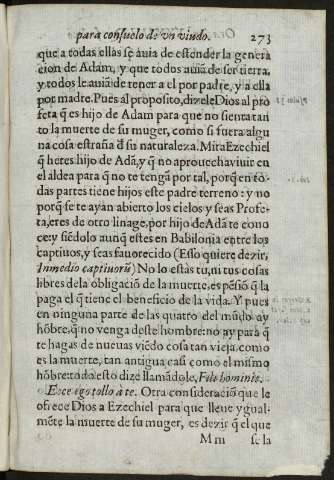 para consuelo de vn viudo. 273
que a todas ellas se auia de estender la genera
cion de Adam, y que todos auiã de ser tierra,
y todos le auiã de tener a el por padre, y a ella
por madre. Pues al proposito, dizele Dios al pro
feta q̃ es hijo de Adam para que no sienta tan
to la muerte de su muger, como si fuera algu
na cosa estraña d̃ su naturaleza. Mira Ezechiel
q̃ heres hijo de Adã, y q̃ no aprouecha viuir en
el aldea para q̃ no te tengã por tal, porq̃ en to-
das partes tiene hijos este padre terreno: y no
porq̃ se te ayan abierto los cielos y seas Profe-
ta, eres de otro linage, por hijo de Adã te cono
ce: y siẽdolo aunq̃ estes en Babilonia entre los
captiuos, y seas fauorecido (Esso quiere dezir,
In medio captiuorũ) No lo estàs tu, ni tus cosas
libres dela obligaciõ de la muerte, es pẽsiõ q̃ la
paga el q̃ tiene el beneficio de la vida. Y pues
en ninguna parte de las quatro del mũdo ay
hõbre q̃ no venga deste hombre: no ay para q̃
te hagas de nueuas viẽdo cosa tan vieja como
es la muerte, tan antigua casi como el mismo
hõbre: todo esto dize llamãdole, Fili hominis.
Ecce ego tollo à te. Otra consideraciõ que le
ofrece Dios a Ezechiel para que lleue ygual-
mẽte la muerte de su muger, es dezir q̃ el que
Mm se la